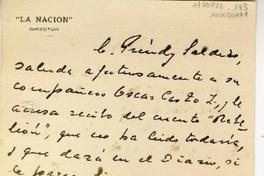 "LA NACION"
DIRECTOR
C. Préndez Saldías,
saluda afectuosamente a su
compañero Oscar Castro Z., y le
acusa recibo del cuento "Rebe-
lión", que no ha leido todavía,
y que dará en el Diario, si
le parece